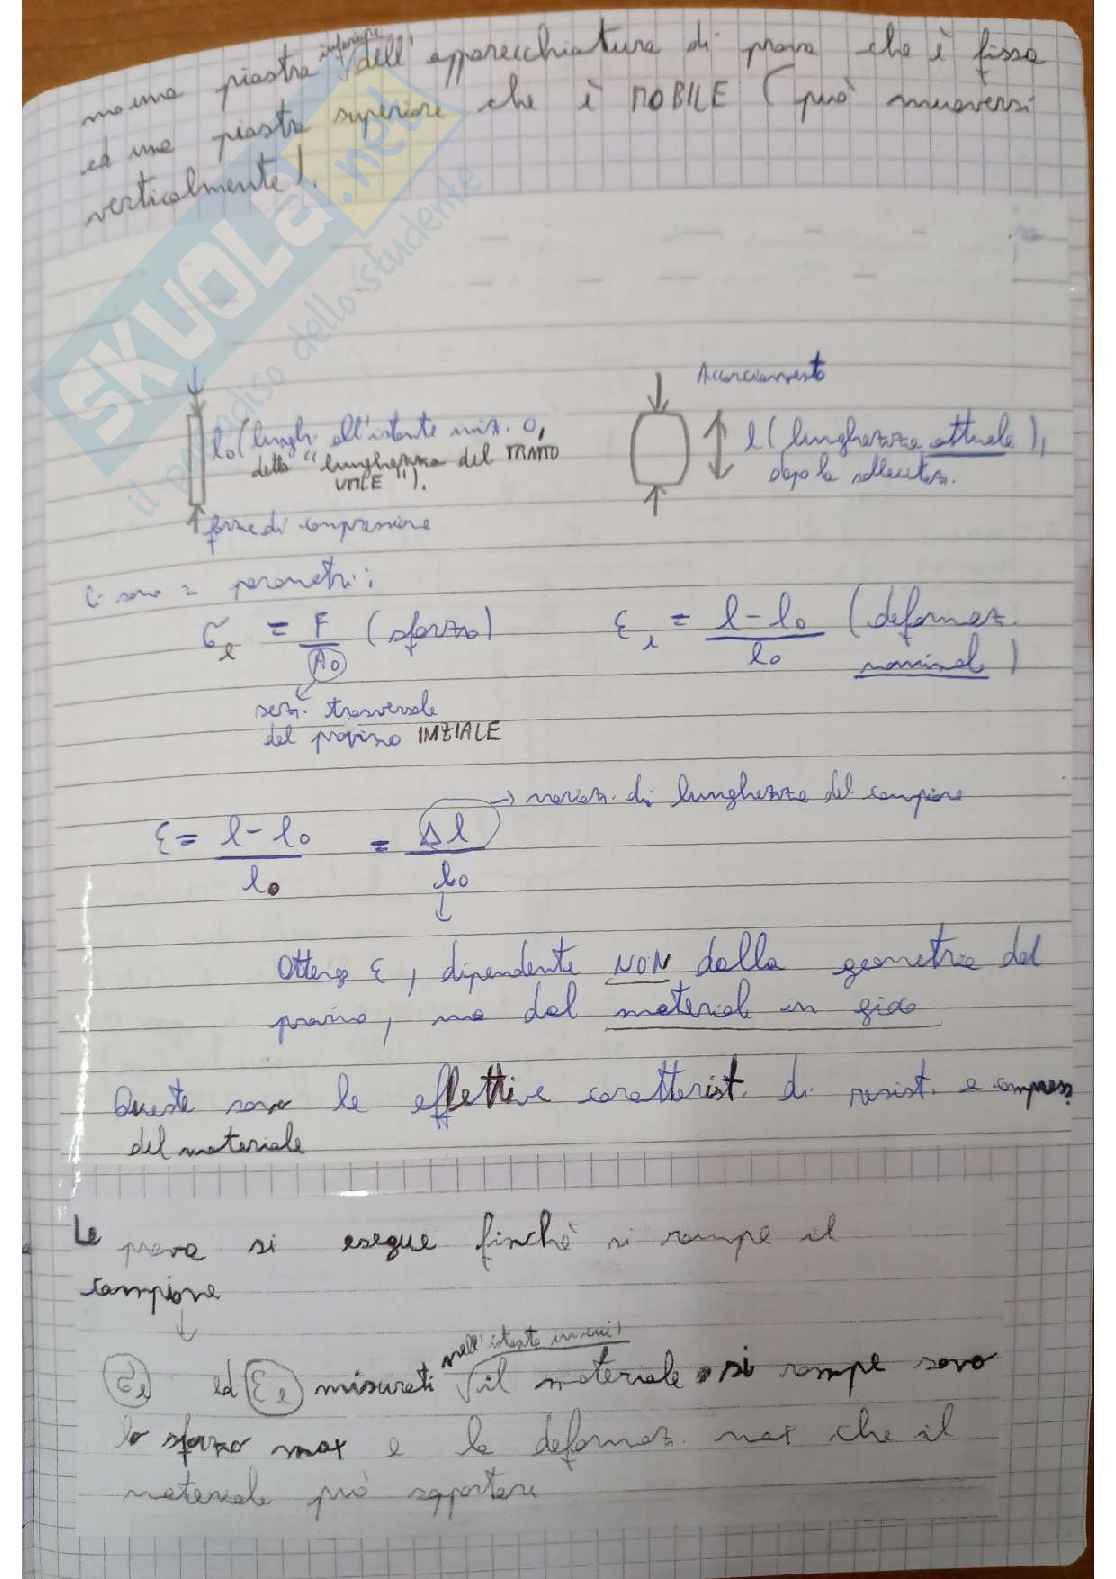 na una piastra inferiore dell'apparecchiatura di prova che è fissa
ed una piastra superiore che è MOBILE (può muoversi
verticalmente).
SKUOLA.net
il paradiso dello studente
Accorciamento
l0 (lungh. all'istante iniz. 0,
detto "lunghezza del TRATTO
UTILE").
l (lunghezza attuale),
dopo la sollecitaz.
forze di compressione
Ci sono 2 parametri:
σl = F/A0 (sforzo)
εl = l - l0/l0 (deformaz. nominale)
sez. trasversale
del provino INIZIALE
→ variaz. di lunghezza del campione
ε = l - l0/l0 = Δl/l0
Ottengo ε, dipendente NON dalla geometria del
provino, ma dal materiale in gioco
Queste sono le effettive caratterist. di resist. e compress.
del materiale
La prova si esegue finchè si rompe il
campione
σl ed εl misurati nell'istante in cui il materiale si rompe sono
lo sforzo max e la deformaz. max che il
materiale può sopportare